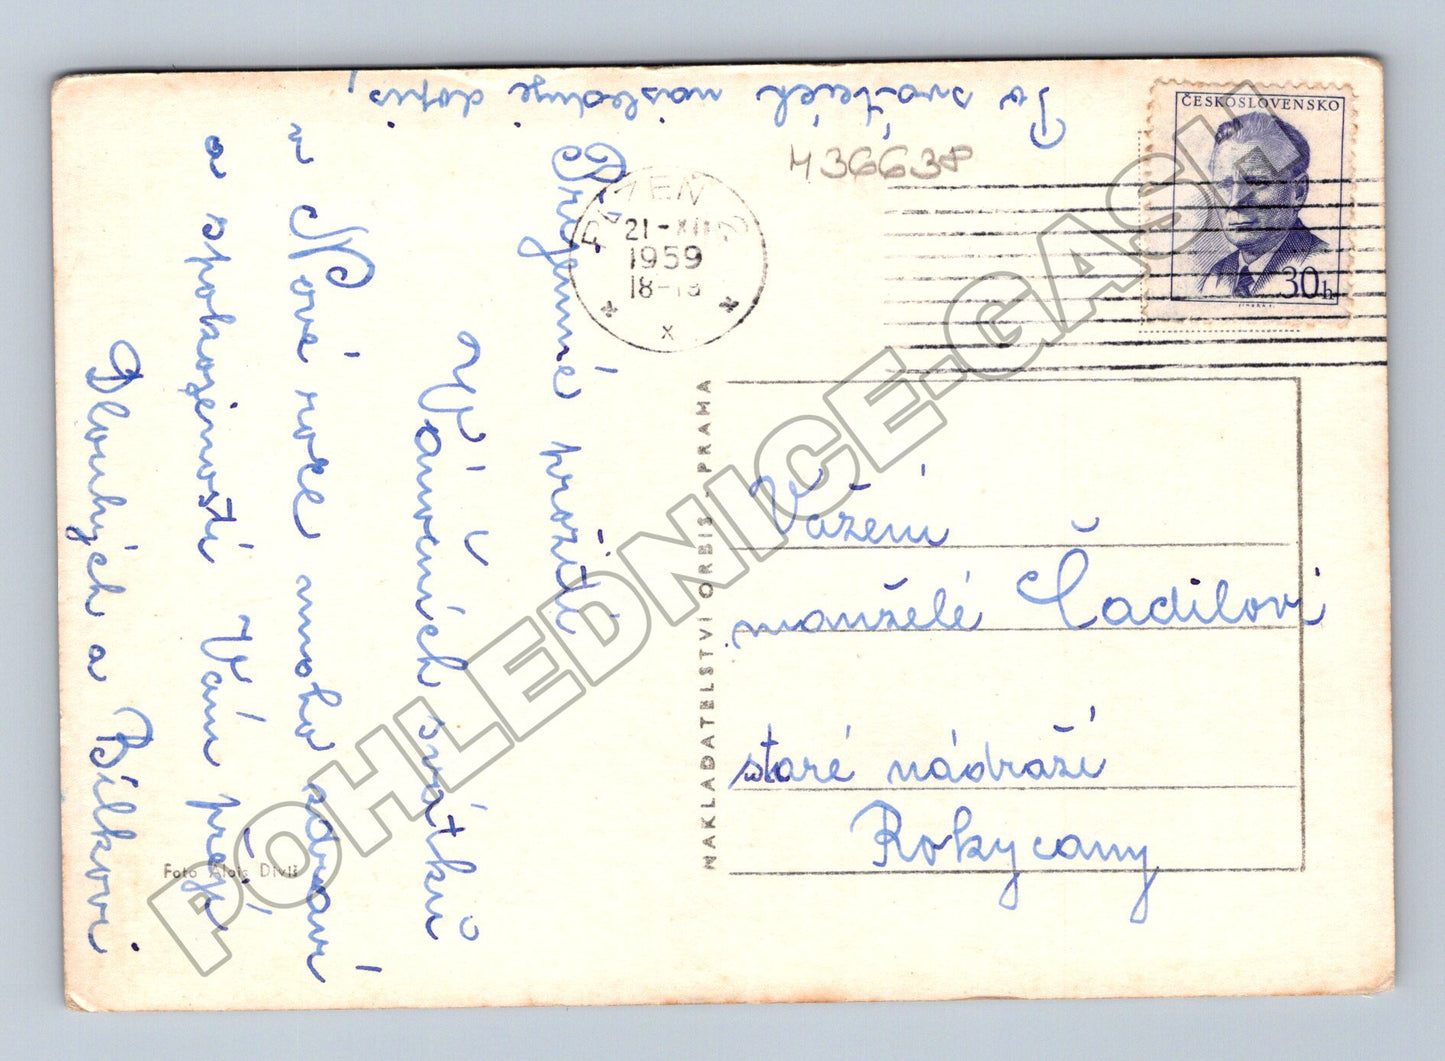 Po svátcích následuje dopis,
Příjemné prožití
Vánočních svátků
a Nové roce mnoho zdraví
a spokojenosti Vám přejí
Dlouhých a Bílkovi.
Foto Alois Diviš
M36638
PLZEŇ 2
21-XII
1959
18-19
x
ČESKOSLOVENSKO
30h
NAKLADATELSTVÍ ORBIS - PRAHA
Vážení
manželé Čadilovi
staré nádraží
Rokycany
POHLEDNICE-GASH